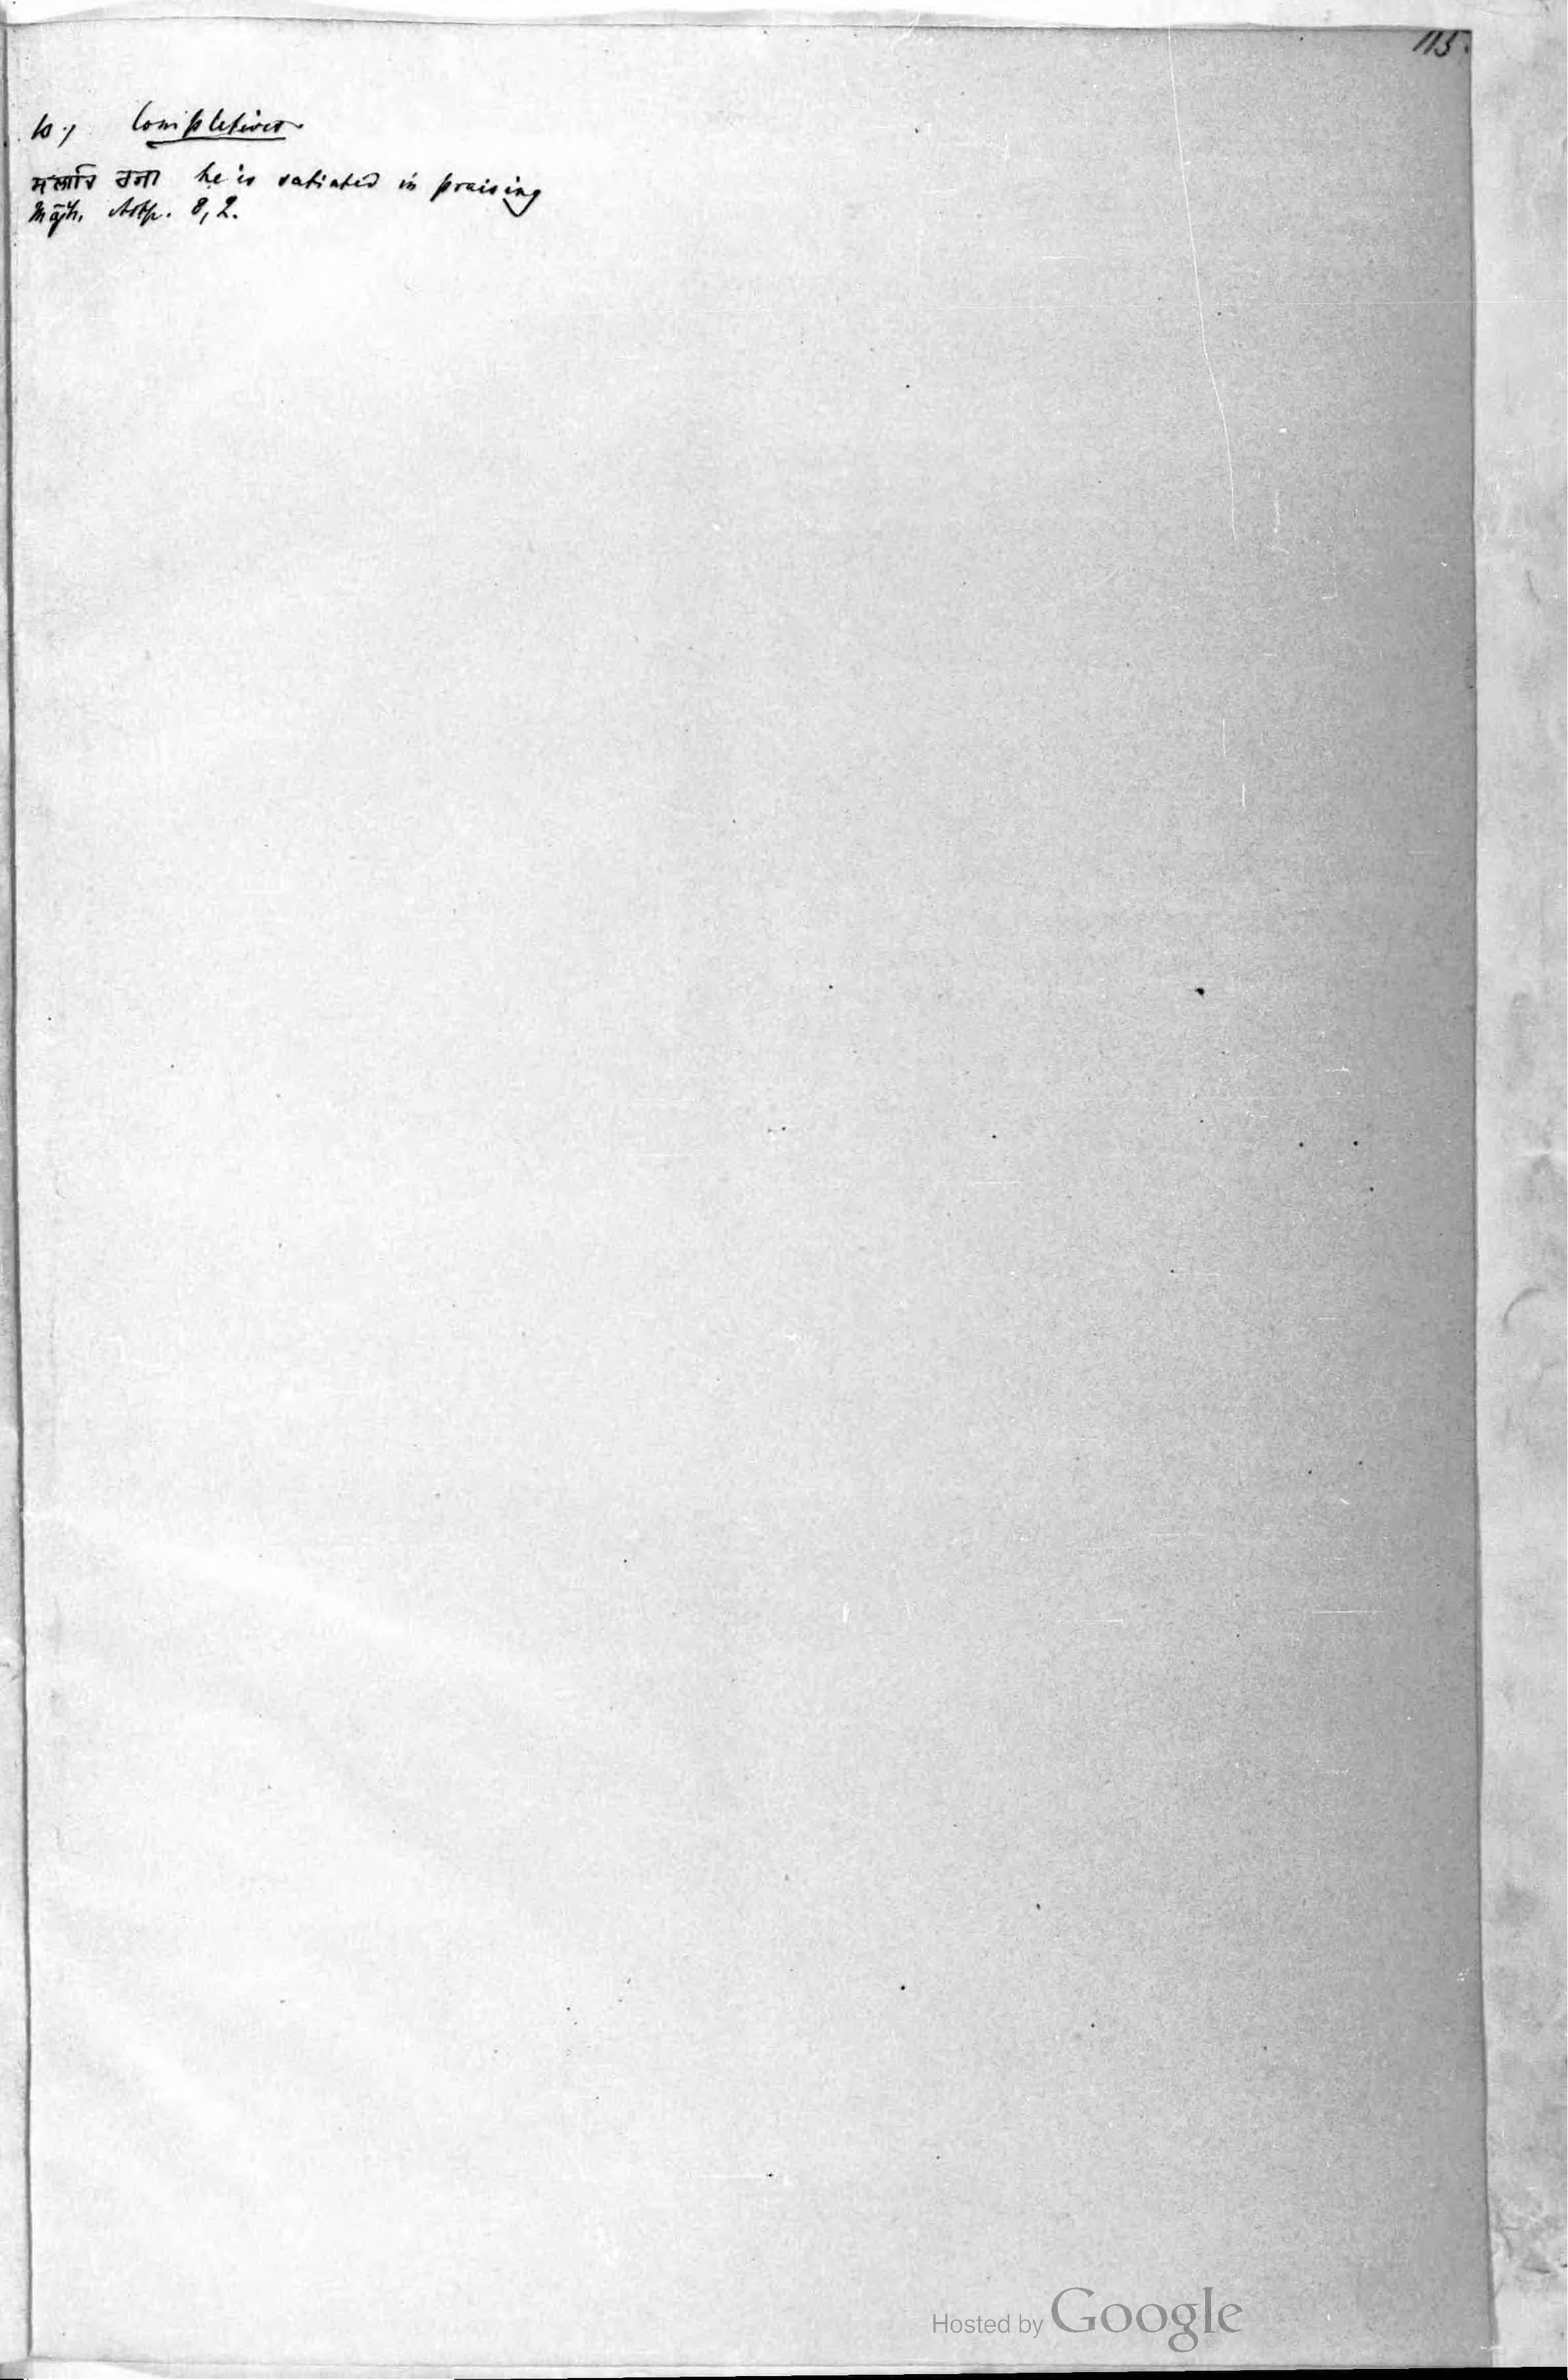 115.
b.) Completives
ਸਲਾਹਿ ਰਜਾ he is satiated in praising
Mājh. Astp. 8, 2.
Hosted by Google